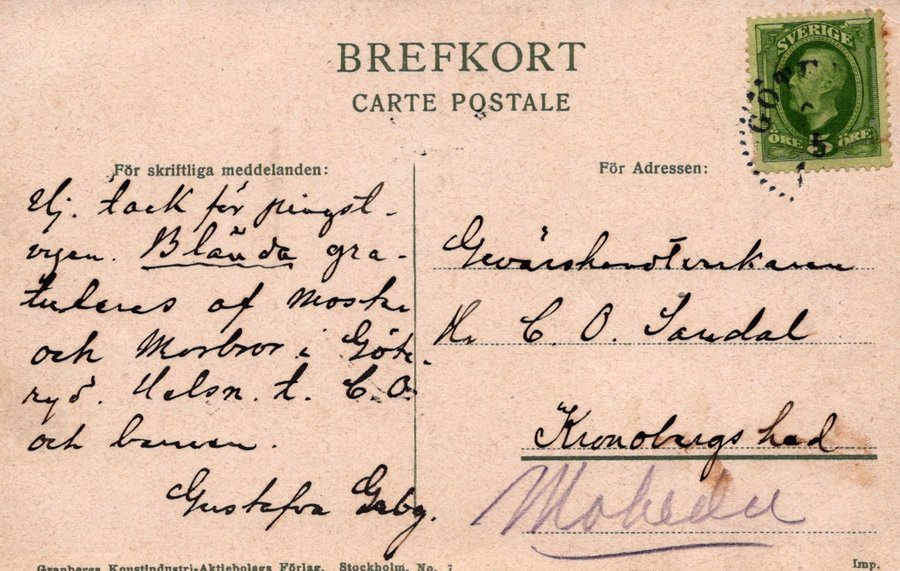 BREFKORT
CARTE POSTALE
SVERIGE
ÖRE 5 ÖRE
GÖTE
5
För skriftliga meddelanden:
För Adressen:
tack för pingst-
vyen. Blända gra-
tuleras af
och Morbror i Göte-
ryd. Helsn. t. C. O.
och barnen.
Gustafva Gbg.
Gevärshandtverkaren
Hr C. O. Sandal
Kronobergs hed
Moheda
Granbergs Konstindustri-Aktiebolags Förlag. Stockholm. No.
Imp.